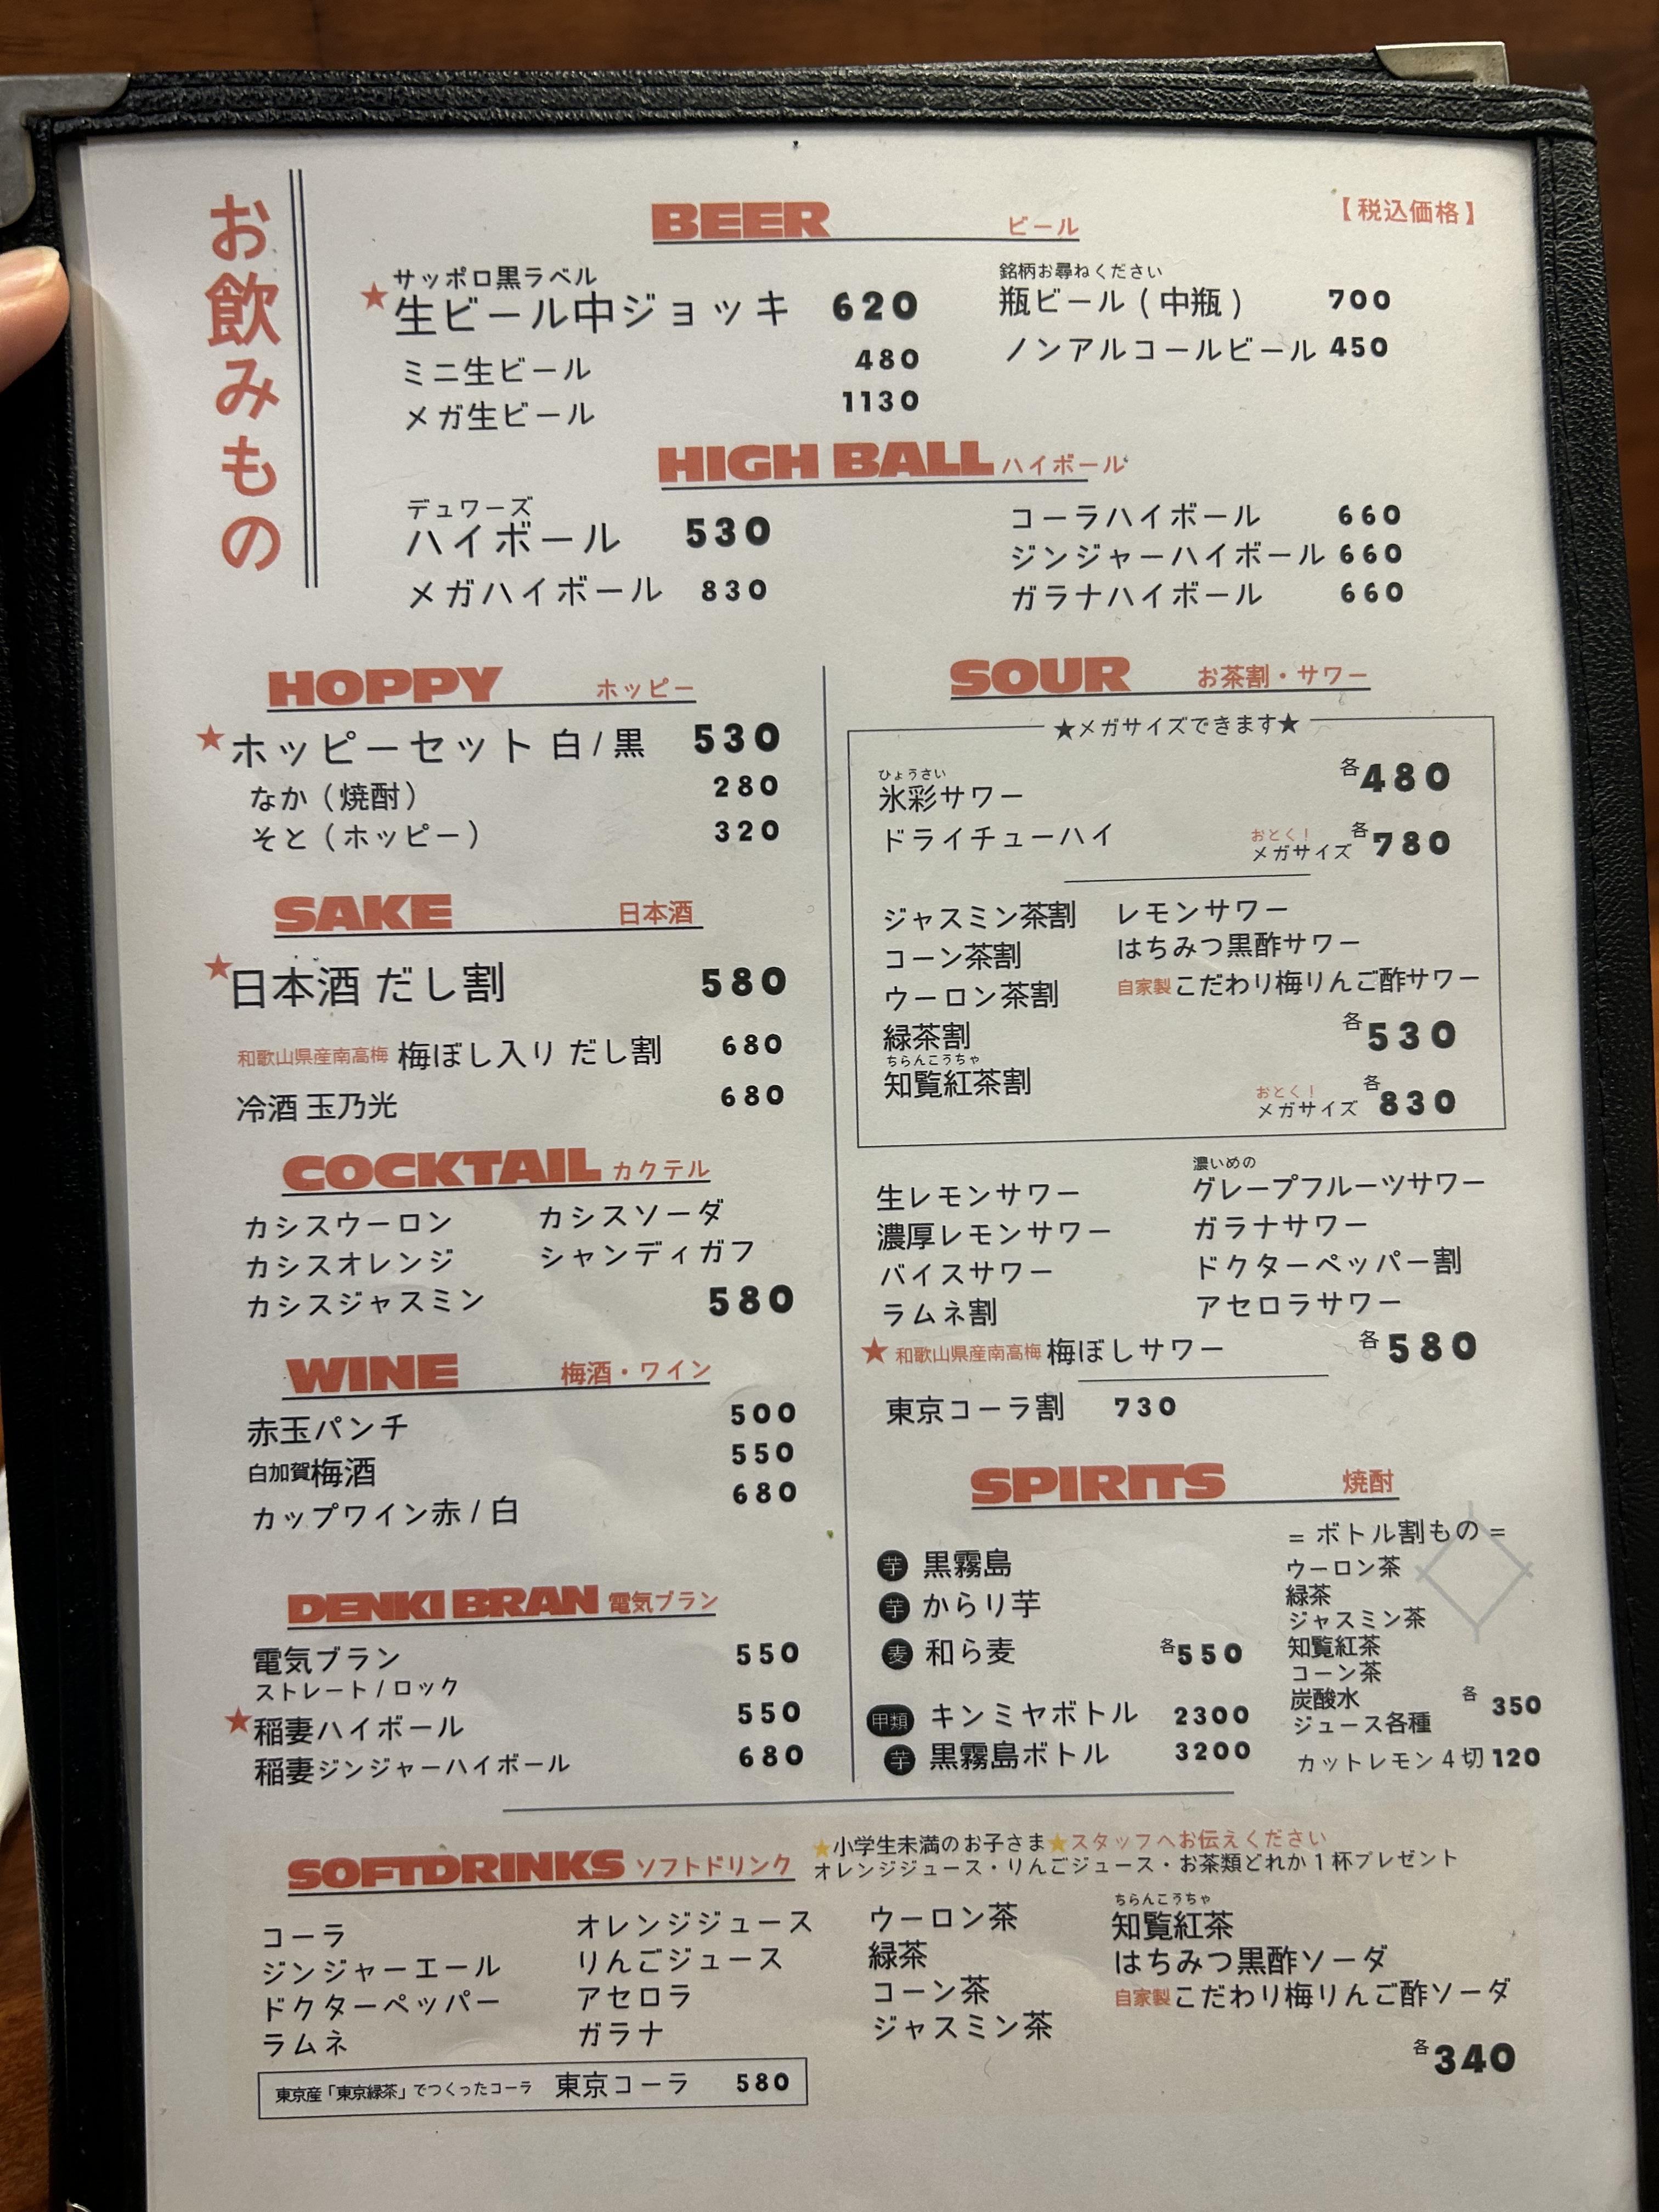 お飲みもの
BEER ビール
【税込価格】
サッポロ黒ラベル
★生ビール中ジョッキ 620
ミニ生ビール 480
メガ生ビール 1130
銘柄お尋ねください
瓶ビール(中瓶) 700
ノンアルコールビール 450
HIGH BALL ハイボール
デュワーズ
ハイボール 530
メガハイボール 830
コーラハイボール 660
ジンジャーハイボール 660
ガラナハイボール 660
HOPPY ホッピー
★ホッピーセット 白/黒 530
なか(焼酎) 280
そと(ホッピー) 320
SAKE 日本酒
★日本酒 だし割 580
和歌山県産南高梅 梅ぼし入り だし割 680
冷酒 玉乃光 680
COCKTAIL カクテル
カシスウーロン カシスソーダ
カシスオレンジ シャンディガフ
カシスジャスミン 580
WINE 梅酒・ワイン
赤玉パンチ 500
白加賀梅酒 550
カップワイン赤/白 680
DENKI BRAN 電気ブラン
電気ブラン 550
ストレート/ロック
★稲妻ハイボール 550
稲妻ジンジャーハイボール 680
SOUR お茶割・サワー
★メガサイズできます★
ひょうさい
氷彩サワー 各480
ドライチューハイ おとく! メガサイズ 各780
ジャスミン茶割 レモンサワー
コーン茶割 はちみつ黒酢サワー
ウーロン茶割 自家製こだわり梅りんご酢サワー
緑茶割 各530
ちらんこうちゃ
知覧紅茶割 おとく! メガサイズ 各830
濃いめの
生レモンサワー グレープフルーツサワー
濃厚レモンサワー ガラナサワー
バイスサワー ドクターペッパー割
ラムネ割 アセロラサワー
★和歌山県産南高梅 梅ぼしサワー 各580
東京コーラ割 730
SPIRITS 焼酎
芋 黒霧島
芋 からり芋
麦 和ら麦 各550
甲類 キンミヤボトル 2300
芋 黒霧島ボトル 3200
= ボトル割もの =
ウーロン茶
緑茶
ジャスミン茶
知覧紅茶
コーン茶
炭酸水
ジュース各種 各350
カットレモン4切 120
SOFTDRINKS ソフトドリンク
★小学生未満のお子さま★スタッフへお伝えください
オレンジジュース・りんごジュース・お茶類どれか1杯プレゼント
コーラ オレンジジュース ウーロン茶
ちらんこうちゃ
知覧紅茶
ジンジャーエール りんごジュース 緑茶 はちみつ黒酢ソーダ
ドクターペッパー アセロラ コーン茶 自家製こだわり梅りんご酢ソーダ
ラムネ ガラナ ジャスミン茶
各340
東京産「東京緑茶」でつくったコーラ 東京コーラ 580